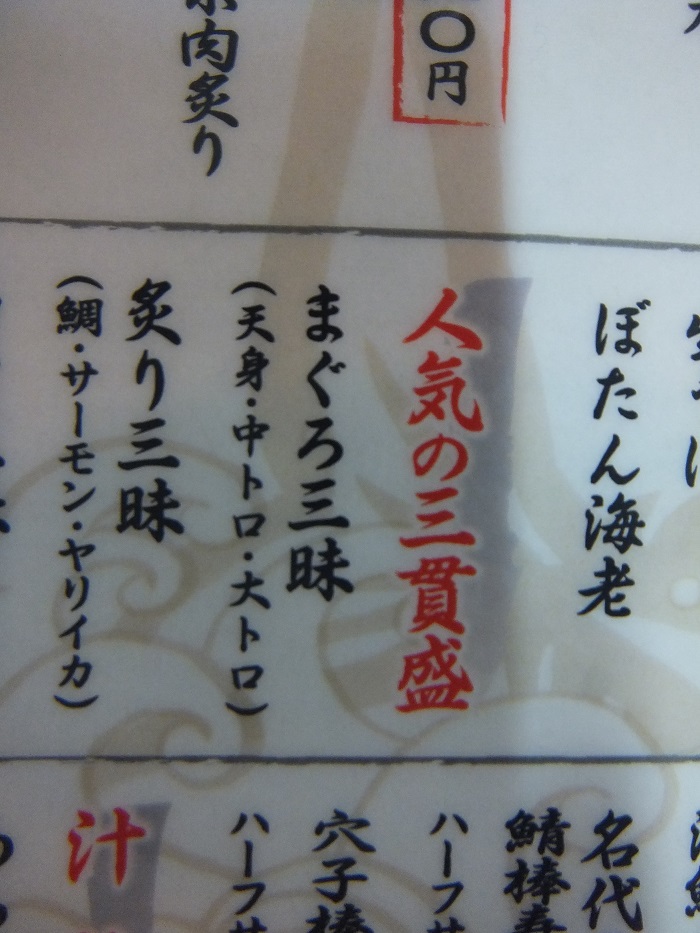 〇円
肉炙り
ぼたん海老
人気の三貫盛
まぐろ三昧
(天身・中トロ・大トロ)
炙り三昧
(鯛・サーモン・ヤリイカ)
名代
鯖棒寿
ハーフサ
穴子棒
ハーフサ
汁